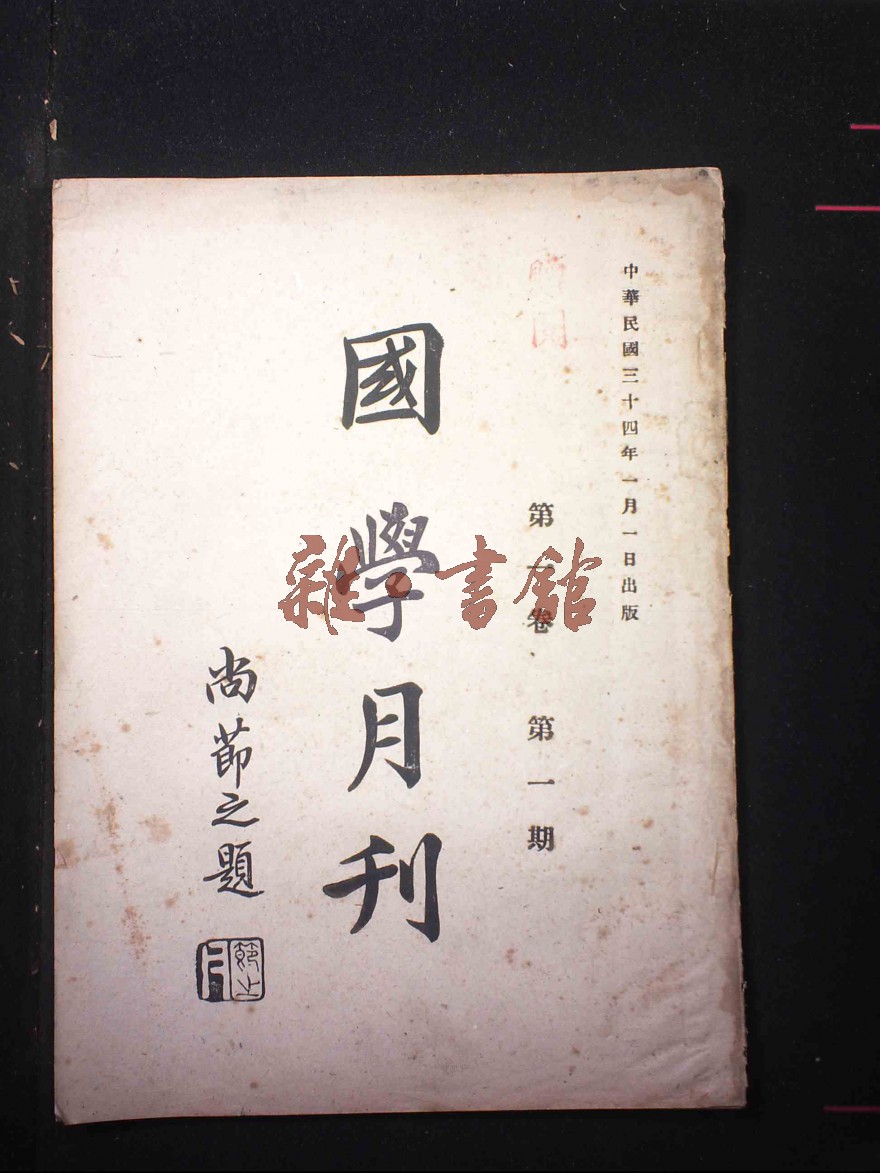 中華民國三十四年一月一日出版
第一卷 第一期
國學月刊
尚節之題
雜·書館